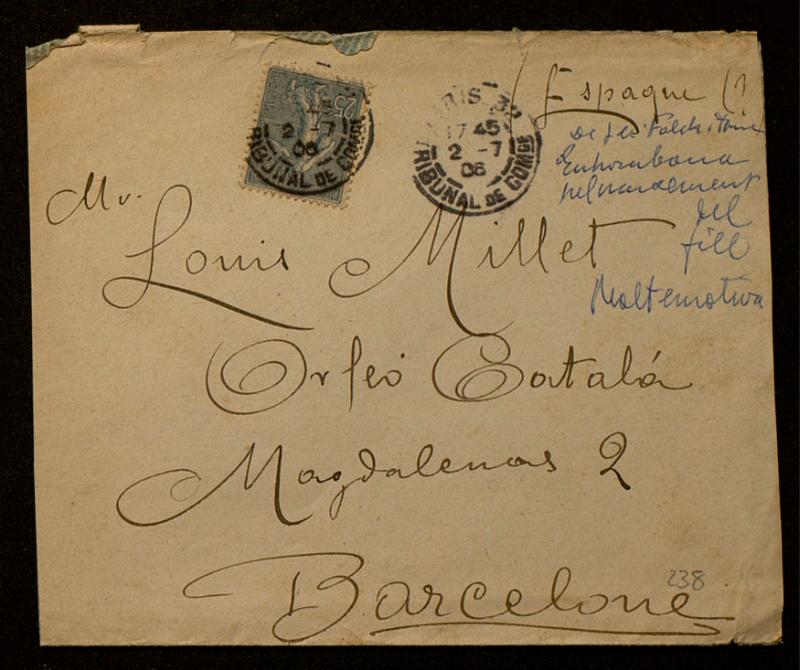 25
2 -7
06
TRIBUNAL DE COMCE
PARIS
17 45
2 -7
06
TRIBUNAL DE COMCE
Espagne
Enhorabona
del
fill
Molt emotiva
Mr.
Louis Millet
Orfeó Catalá
Magdalenas 2
Barcelone
238